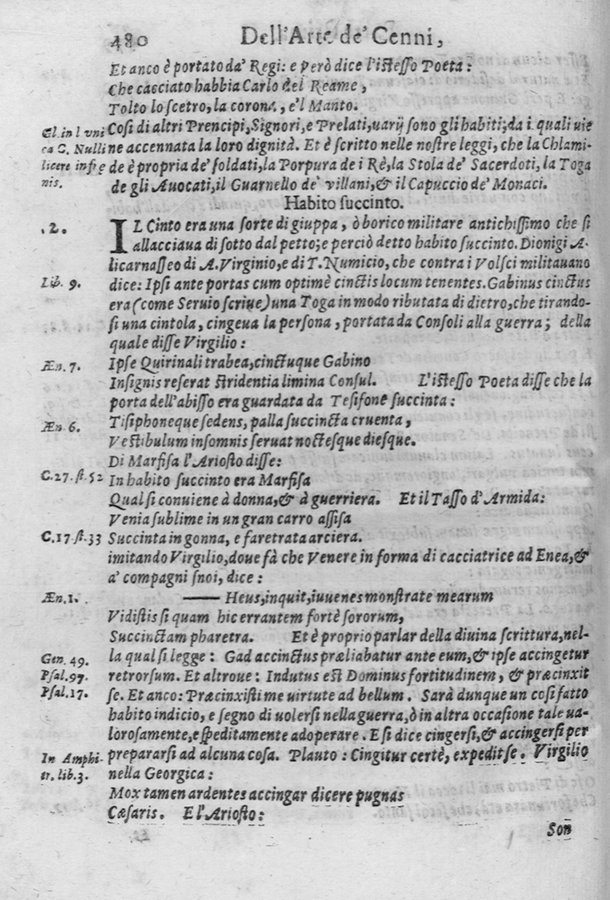 480 Dell'Arte de' Cenni,
Et anco è portato da' Regi: e però dice l'istesso Poeta:
Che cacciato habbia Carlo del Reame,
Tolto lo scetro, la corona, e'l Manto.
Cl. in l. vni Cosi di altri Prencipi, Signori, e Prelati, uarij sono gli habiti; da i quali uie
ca C. Nulli ne accennata la loro dignità. Et è scritto nelle nostre leggi, che la Chlami-
licere in frę de è propria de' soldati, la Porpura de i Rè, la Stola de' Sacerdoti, la Toga
nis. de gli Auocati, il Guarnello de' villani, & il Capuccio de' Monaci.
Habito succinto.
.2. IL Cinto era una sorte di giuppa, ò borico militare antichissimo che si
allacciaua di sotto dal petto; e perciò detto habito succinto. Dionigi A-
licarnasseo di A. Virginio, e di T. Numicio, che contra i Volsci militauano
Lib. 9. dice: Ipsi ante portas cum optimè cinctis locum tenentes. Gabinus cinctus
era (come Seruio scriue) una Toga in modo ributata di dietro, che tirando-
si una cintola, cingeua la persona, portata da Consoli alla guerra; della
quale disse Virgilio:
Æn. 7. Ipse Quirinali trabea, cinctuque Gabino
Insignis reserat stridentia limina Consul. L'istesso Poeta disse che la
porta dell'abisso era guardata da Tesifone succinta:
Æn. 6. Tisiphoneque sedens, palla succincta cruenta,
Vestibulum insomnis seruat noctesque diesque.
Di Marfisa l'Ariosto disse:
C. 27. st. 52 In habito succinto era Marfisa
Qual si conuiene à donna, & à guerriera. Et il Tasso d'Armida:
Venia sublime in un gran carro assisa
C. 17. st. 33 Succinta in gonna, e faretrata arciera.
imitando Virgilio, doue fà che Venere in forma di cacciatrice ad Enea, &
a' compagni snoi, dice:
Æn. 1. —— Heus, inquit, iuuenes monstrate mearum
Vidistis si quam hic errantem fortè sororum,
Succinctam pharetra. Et è proprio parlar della diuina scrittura, nel-
Gen. 49. la qual si legge: Gad accinctus præliabatur ante eum, & ipse accingetur
Psal. 97. retrorsum. Et altroue: Indutus est Dominus fortitudinem, & præcinxit
Psal. 17. se. Et anco: Præcinxisti me uirtute ad bellum. Sarà dunque un cosi fatto
habito indicio, e segno di uolersi nella guerra, ò in altra occasione tale ua-
lorosamente, e speditamente adoperare. E si dice cingersi, & accingersi per
In Amphi- prepararsi ad alcuna cosa. Plauto: Cingitur certè, expedit se. Virgilio
tr. lib. 3. nella Georgica:
Mox tamen ardentes accingar dicere pugnas
Cæsaris. E l'Ariosto:
Son